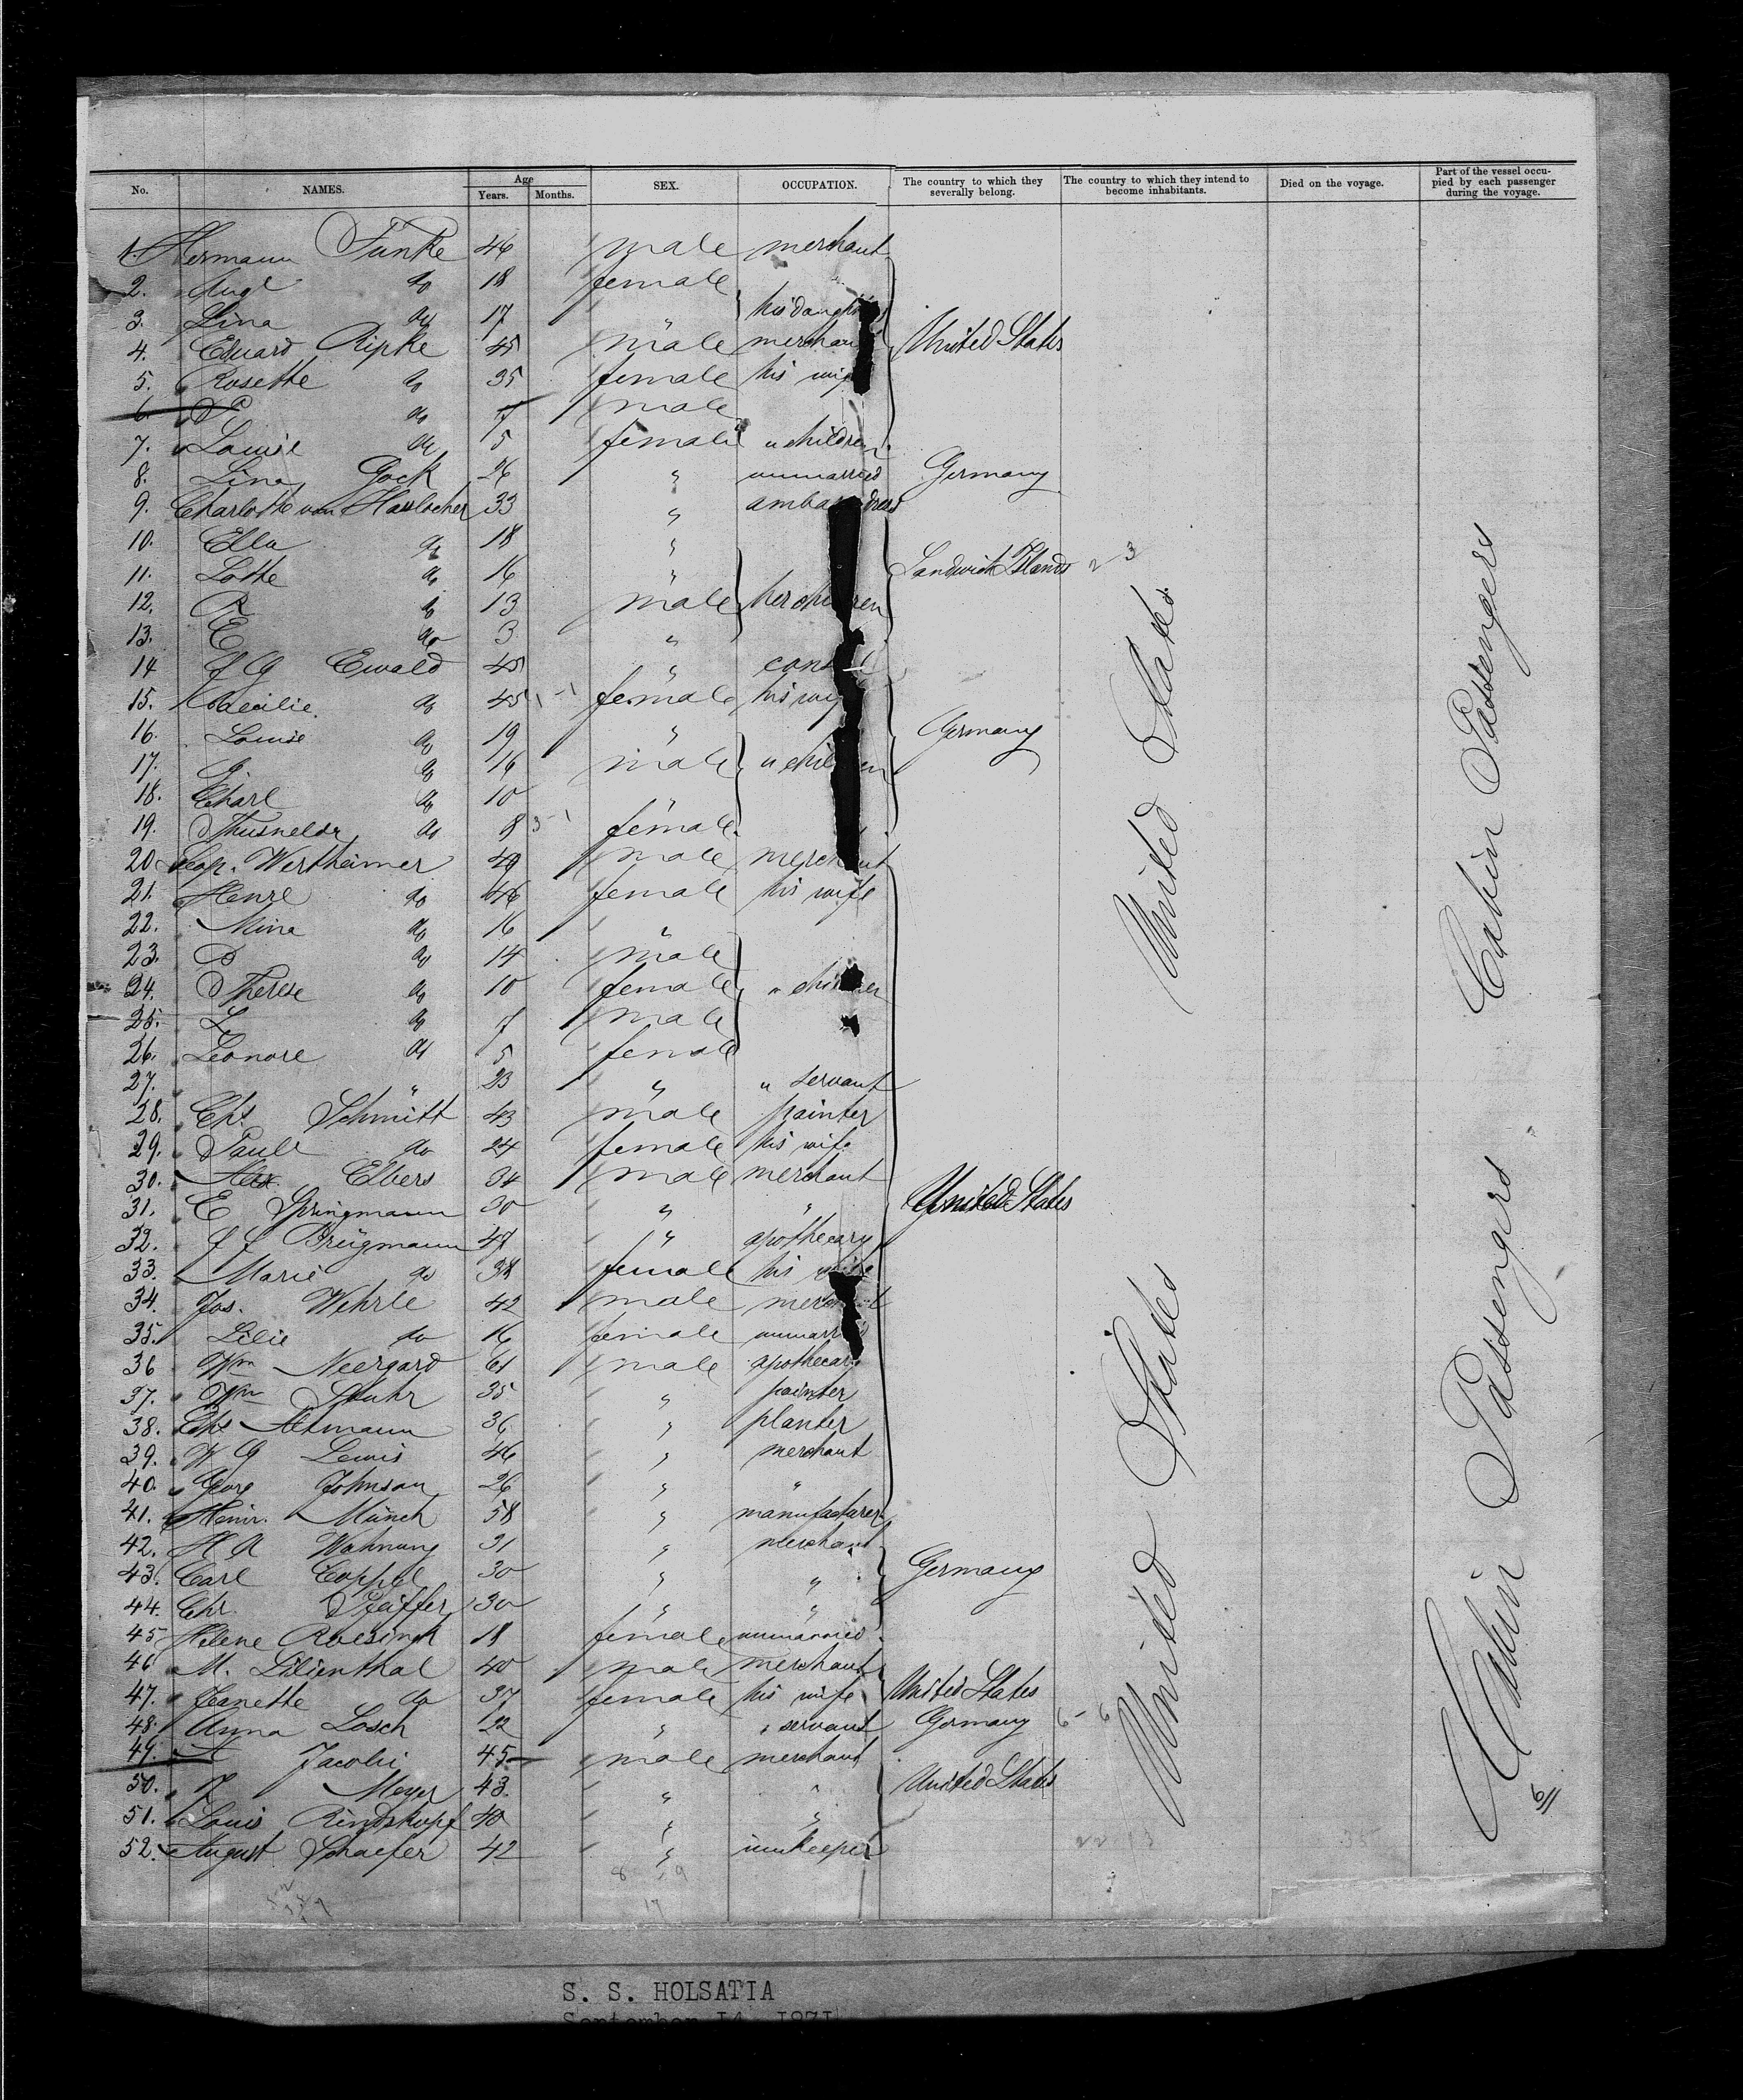 No. NAMES. Age Years. Months. SEX. OCCUPATION. The country to which they severally belong. The country to which they intend to become inhabitants. Died on the voyage. Part of the vessel occupied by each passenger during the voyage.
1. Hermann Funke 46 male merchant
2. Aug do 18 female
3. Lina do 17 " his daughters
4. Eduard Ripke 45 male merchant United States
5. Rosette do 35 female his wife
6. do 7 male
7. Louise do 5 female " children
8. Lina Gock 26 " unmarried Germany
9. Charlotte von Haslocher 33 "
10. Ella do 18 "
11. Lothe do 16 " Sandwich Islands
12. R do 13 male her children
13. E do 3 "
14 J G Ewald 45 " consul
15. Caecilie do 45 female his wife
16. Louise do 19 " Germany
17. do 16 male " children
18. Charl do 10 "
19. Thusnelda do 8 female
20 Leop. Wertheimer 49 male merchant
21. Henrl do 46 female his wife
22. Mina do 16 "
23. do 14 male
24. Therese do 10 female " children
25. L do 7 male
26. Leonore do 5 female
27. " 23 " " servant
28. Chs. Schmitt 43 male painter
29. Paull do 24 female his wife
30. Alex. Elbers 34 male merchant
31. E Springmann 30 " " United States
32. J J Brügmann 47 " apothecary
33. Marie do 38 female his wife
34. Jos. Wehrle 42 male merchant
35. Lilie do 16 female unmarried
36 Wm Neergard 61 male apothecary
37. Wm Stuhr 35 " painter
38. Chs Altmann 36 " planter
39. W G Lewis 46 " merchant
40. Georg Johnson 26 " "
41. Heinr. Münch 58 " manufacturer
42. H A Wahnung 31 " merchant
43. Carl Coppel 30 " " Germany
44. Chr. Pfeiffer 30 " "
45 Helene Roesingh 18 female unmarried
46 M. Lilienthal 40 male merchant
47. Jeanette do 37 female his wife United States
48. Anna Losch 22 " " servant Germany
49. A Jacobi 45 male merchant
50. J Meyer 43. " " United States
51. Louis Rindskopf 40 " "
52. August Schaefer 42 " innkeeper
United States
United States
Cabin Passengers
Cabin Passengers
S. S. HOLSATIA
September 14, 1871